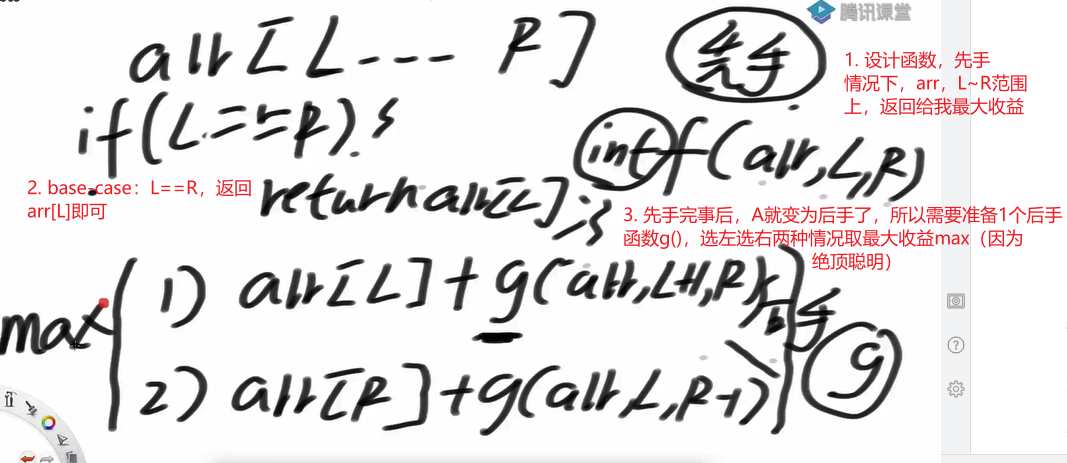 腾讯课堂
arr[L--- R]
先手
1. 设计函数，先手
情况下，arr，L~R范围
上，返回给我最大收益
if(L==R){
int f(arr,L,R)
2. base-case：L==R，返回
arr[L]即可
return arr[L];}
3. 先手完事后，A就变为后手了，所以需要准备1个后手
函数g()，选左选右两种情况取最大收益max（因为
绝顶聪明）
max
1) arr[L]+g(arr,L+1,R)
后手
g
2) arr[R]+g(arr,L,R-1)